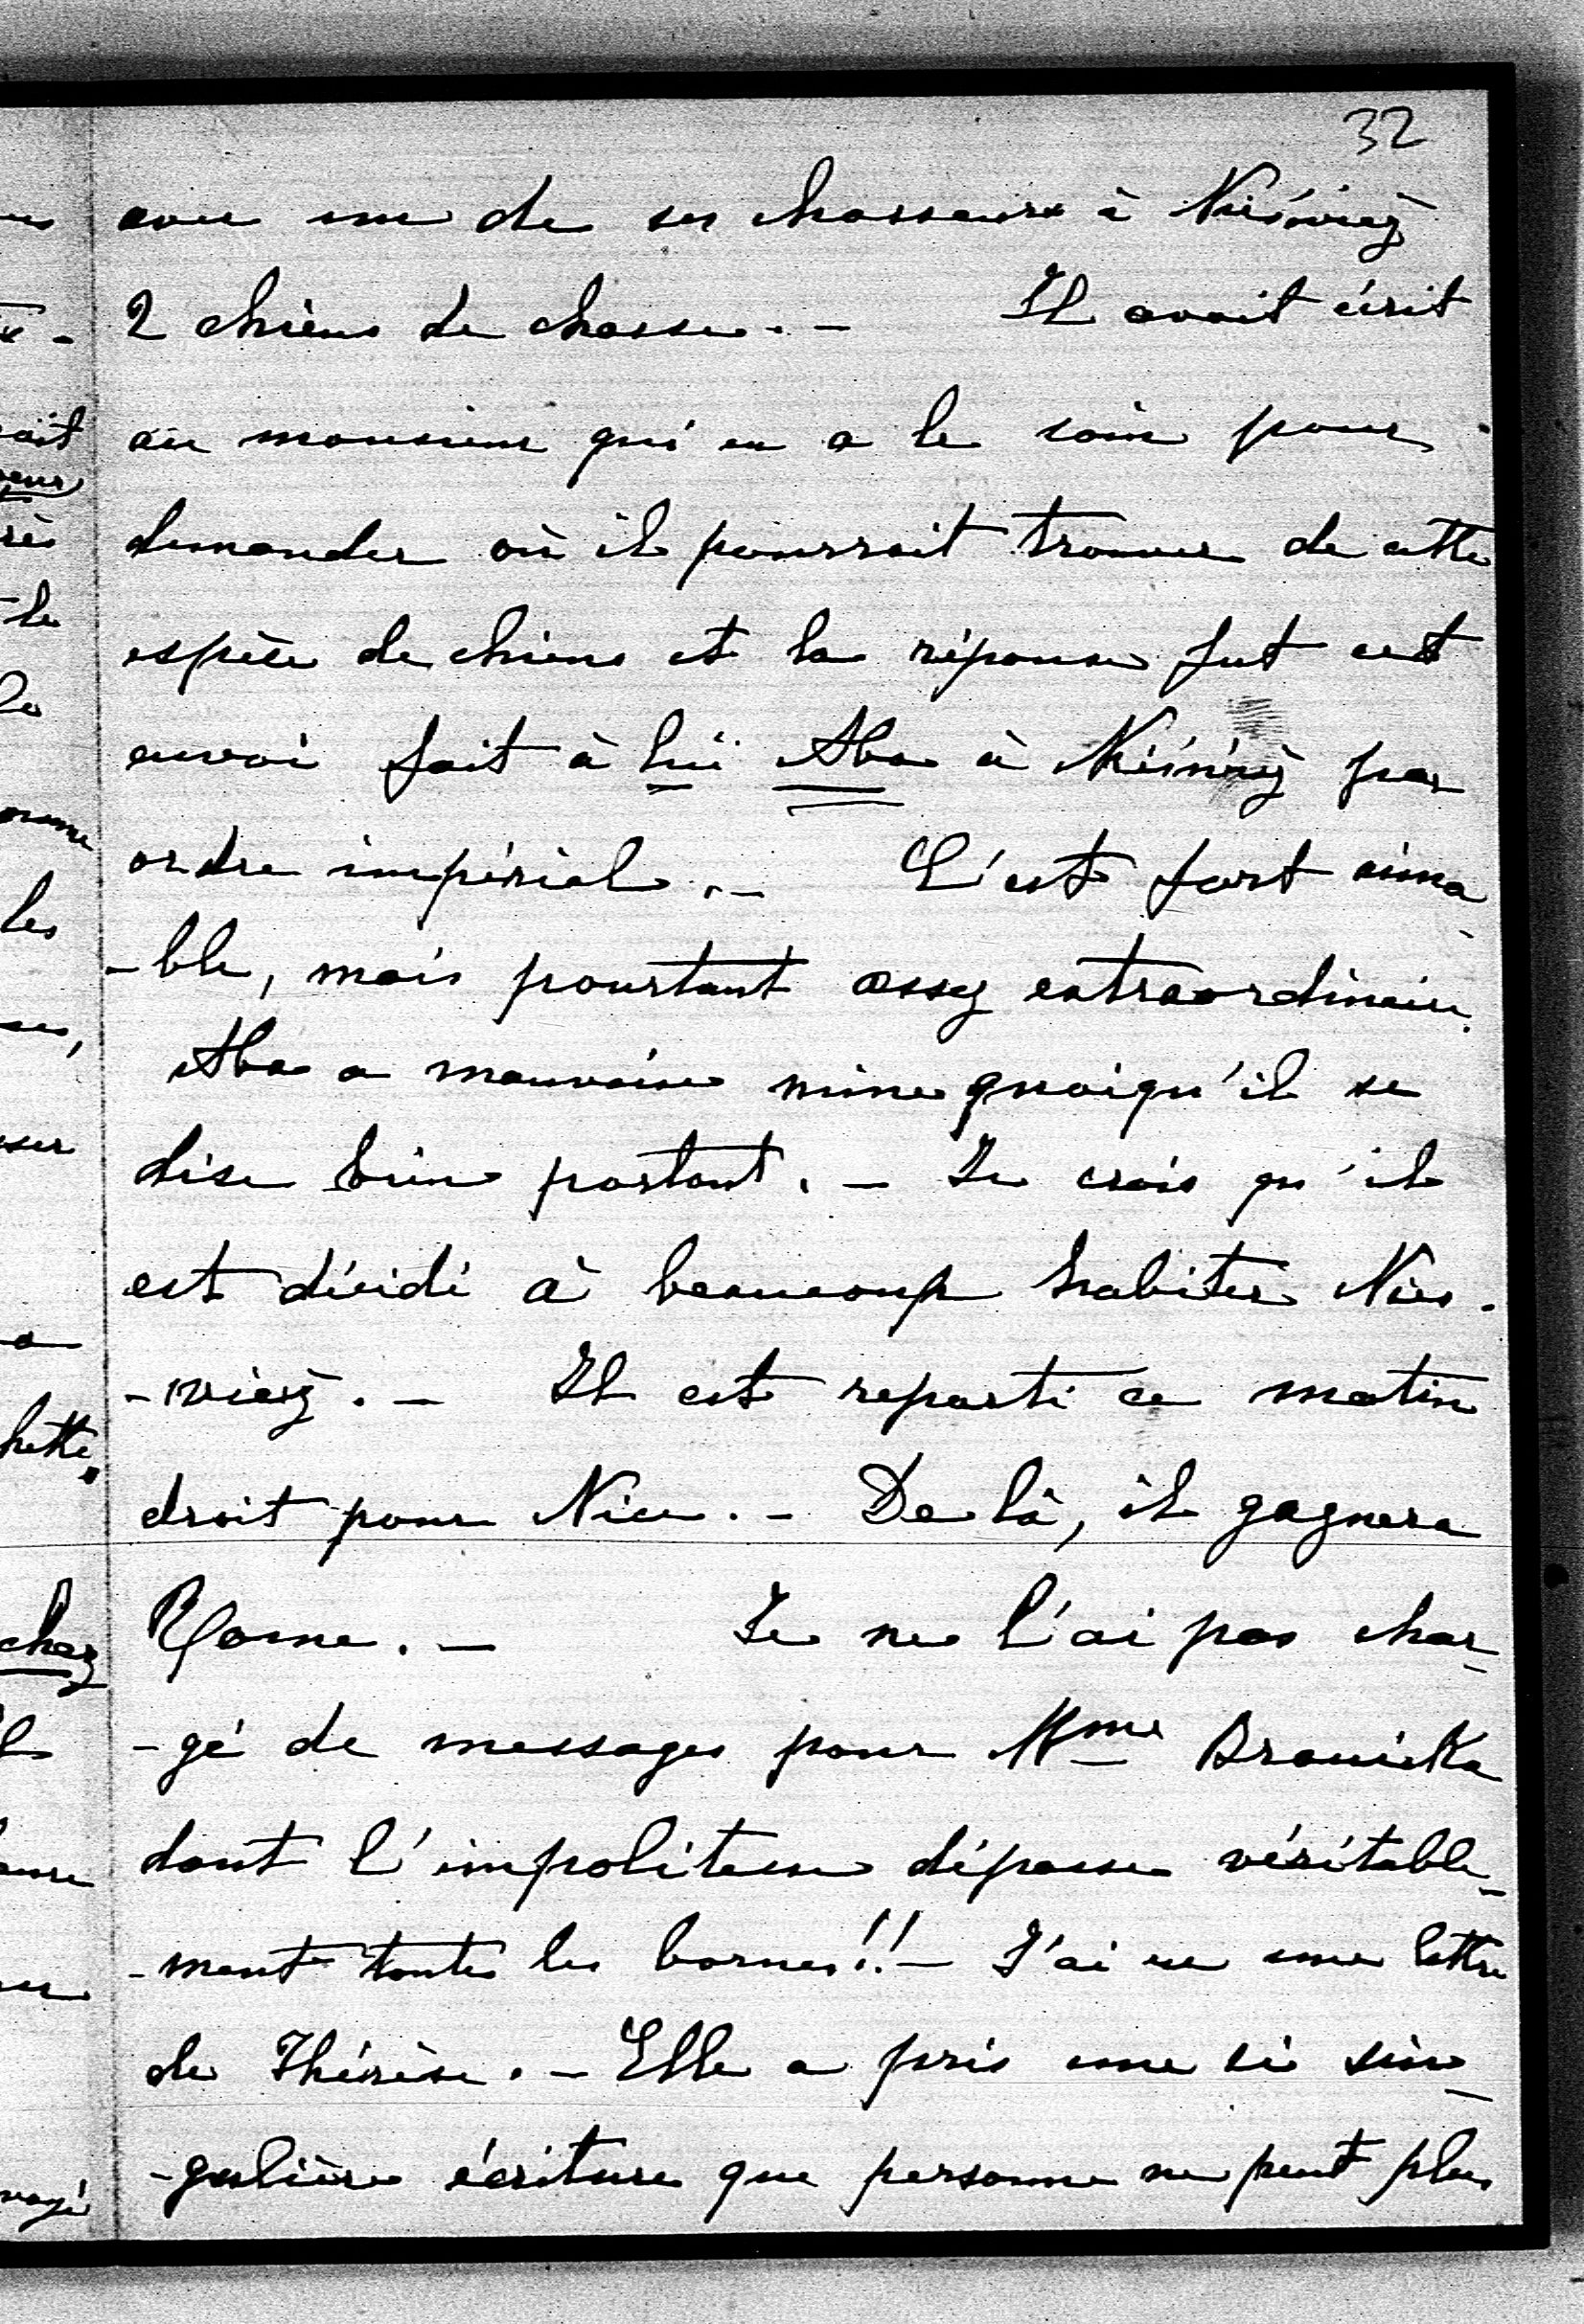 32
avec un de ses chasseurs à Nieśwież
2 chiens de chasse. — Il avait écrit
au monsieur qui en a le soin pour
demander où il pourrait trouver de cette
espèce de chiens et la réponse fut cet
envoi fait à lui Aba à Nieśwież par
ordre impérial. — C'est fort aima-
-ble, mais pourtant assez extraordinaire.
Aba a mauvaise mine quoiqu'il se
dise bien portant. — Je crois qu'il
est décidé à beaucoup habiter Nies-
-wież. — Il est reparti ce matin
droit pour Nice. — De là, il gagnera
Rome. — Je ne l'ai pas char-
-gé de messages pour Mme Branicka
dont l'impolitesse dépasse véritable-
-ment toutes les bornes!! — J'ai eu une lettre
de Thérèse. — Elle a pris une si sin-
-gulière écriture que personne ne peut plus